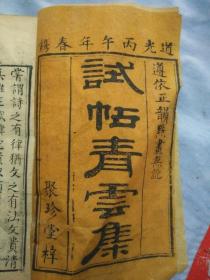 道光丙午年春鐫
遵依正韻點畫無訛
試帖青雲集
聚珍堂梓
嘗謂詩之有律猶文之有法文貴清